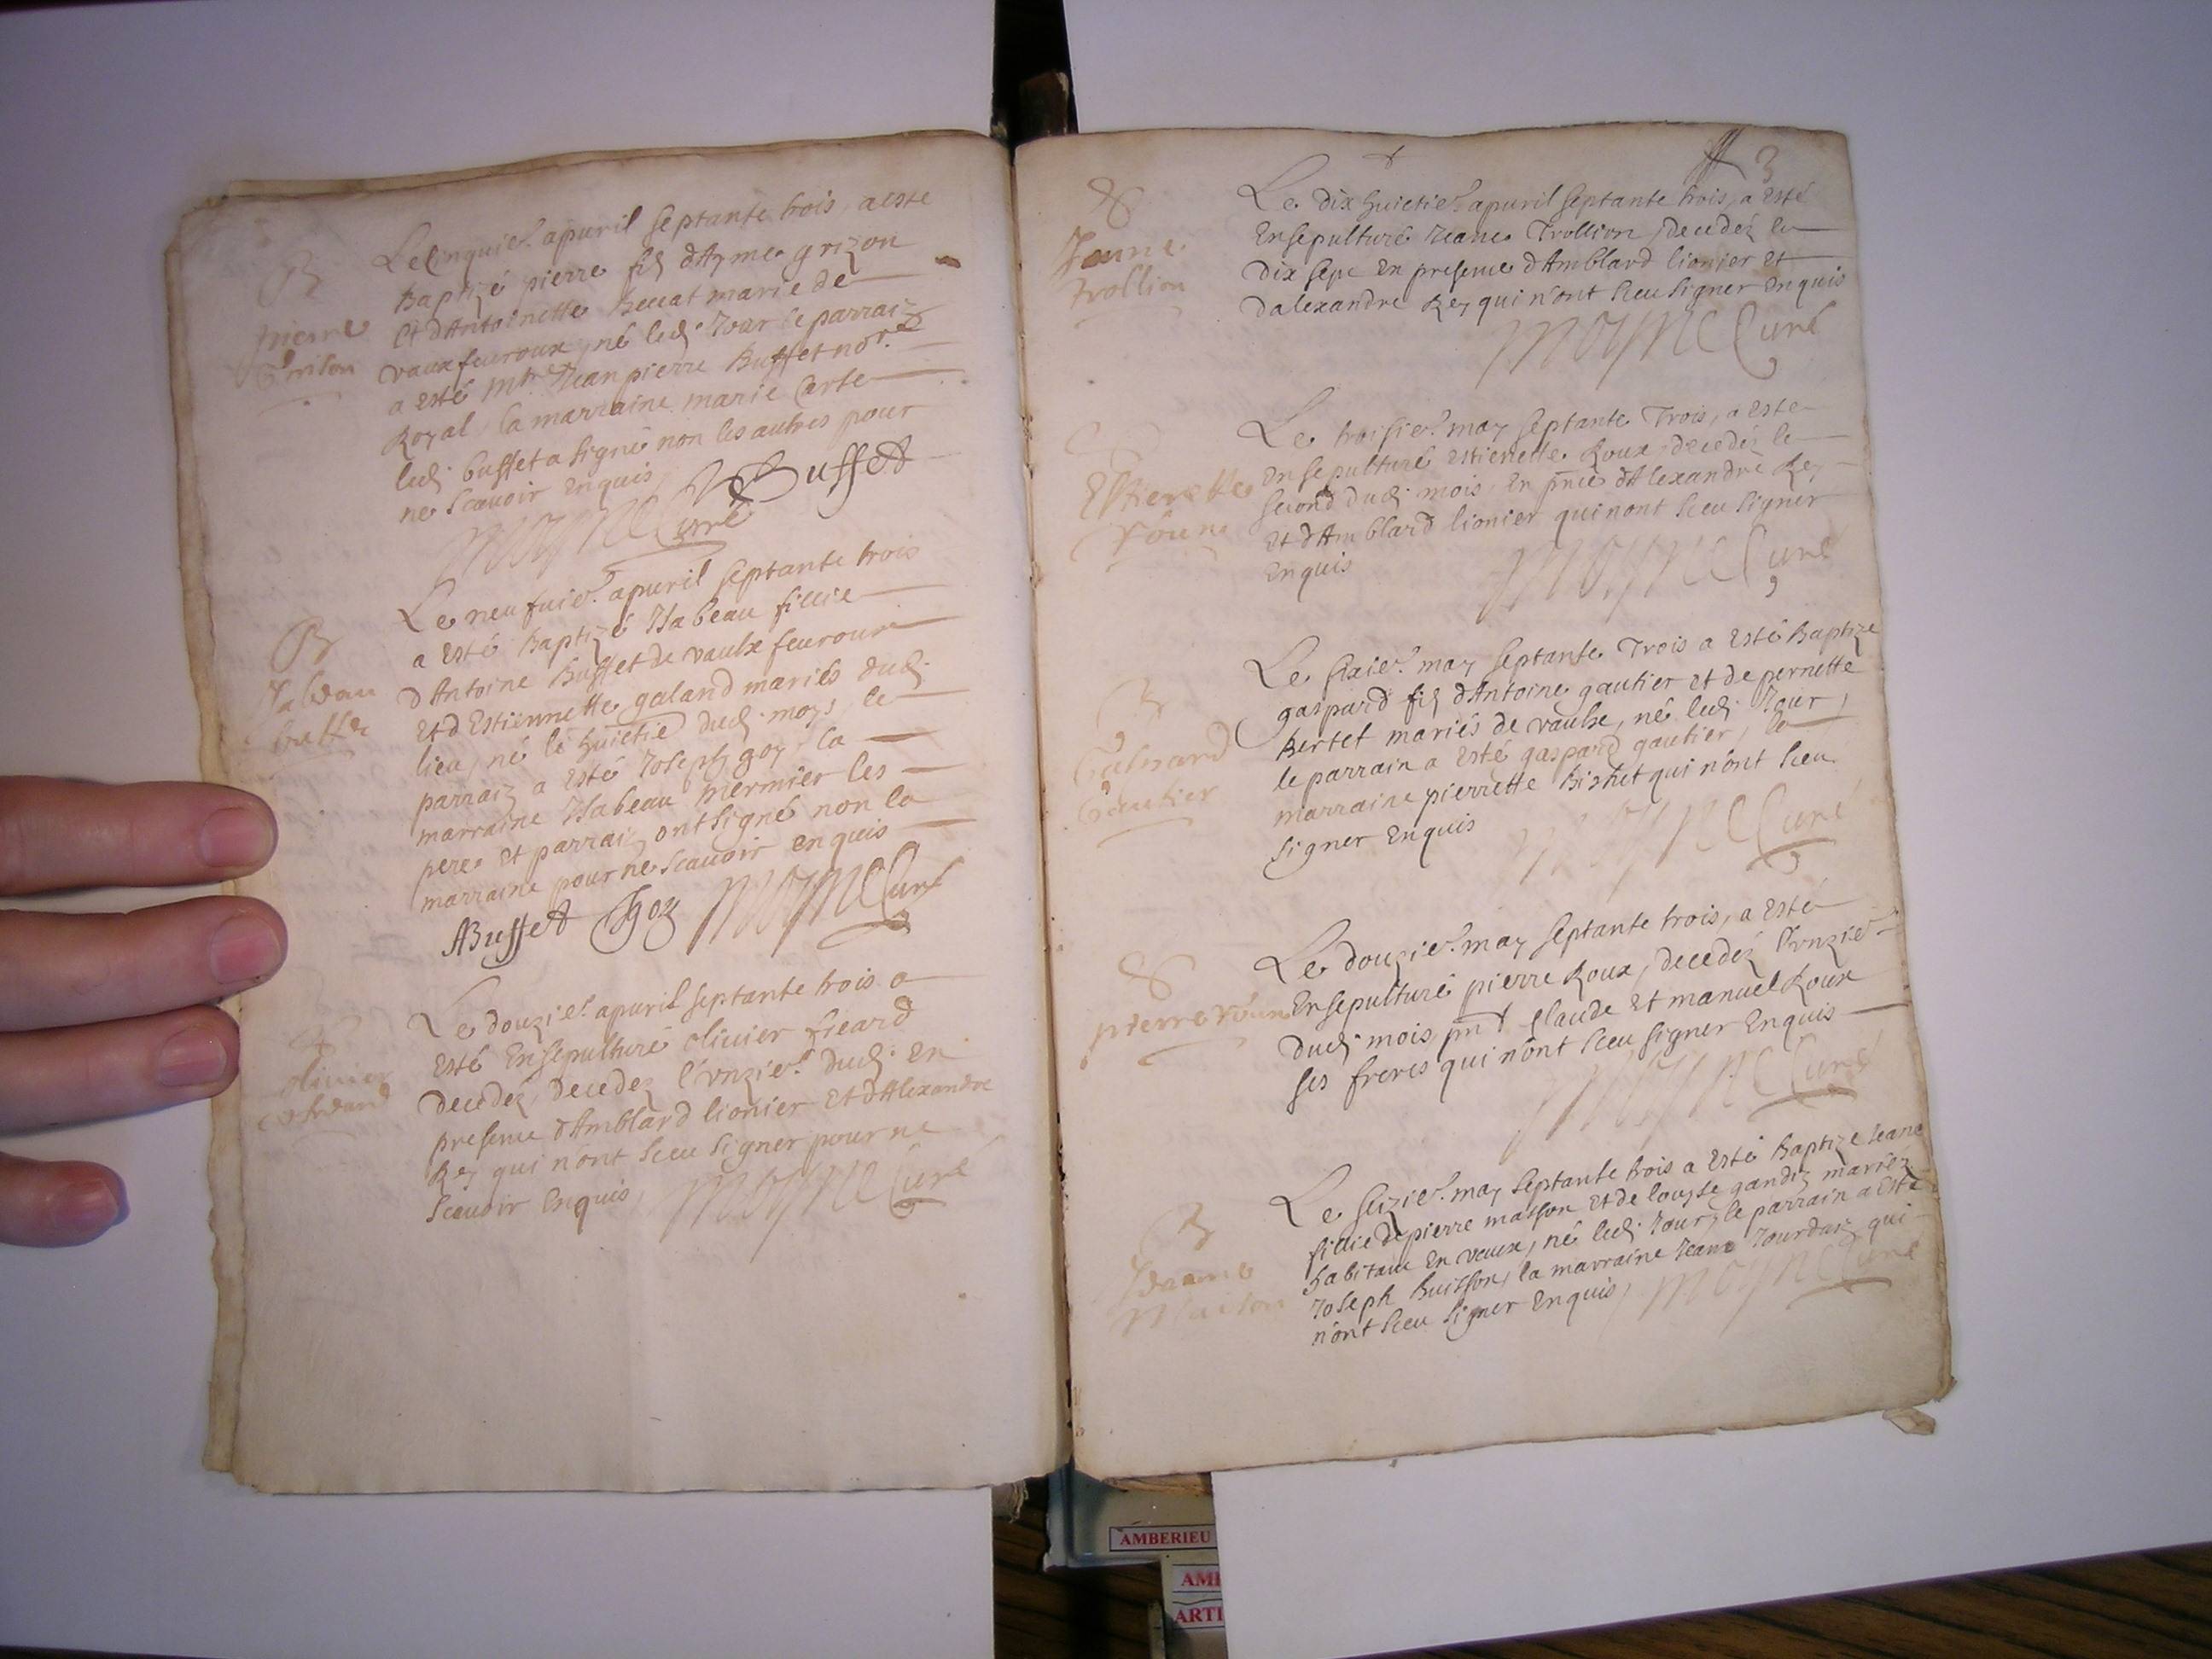 B
pierre
Grison
Le Cinquie. apuril septante trois, a esté
Baptizé pierre fils d'Ayme grizon
Et d'Antoinette Beccat marie de
vaux feuroux, né led. Jour le parraiz
a esté Mtre Jean pierre Buffet nore.
Royal la marraine marie Carte
led. buffet a signé non les autres pour
ne scauoir Enquis
Buffet
Moyne Curé
B
Isabeau
buffet
Le neufuie. apuril septante trois
a esté Baptizé Isabeau fillie
d'Antoine Buffet de vaulx feuroux
Et d'Estiennette galand mariés dud.
lieu, né le huictie dud. moys, le
parraiz a esté Joseph goy, la
marraine Isabeau mermier les
pere et parraiz ont signé non la
marraine pour ne scauoir enquis
ABuffet Goy Moyne Curé
olivier
Le douzie. apuril septante trois a
esté Ensepulturé oliuier ficard
decedéz, decedez l'vnzie. dud. En
presence d'Amblard lionier et d'Alexandre
Rey qui n'ont sceu signer pour ne
scauoir Enquis, Moyne Curé
3
S
Jeanne
trollion
Le dix huictie. apuril septante trois, a esté
Ensepulturé Jeane Trollion, decedéz le
dix sept en presence d'Amblard lionier et
d'alexandre Rey qui n'ont sceu signer enquis
Moyne Curé
Estienette
Roux
Le troisie. may septante Trois, a esté
Ensepulturé estienette Roux, decedéz le
second dud. mois, En pnce d'Alexandre Rey
et d'Amblard lionier qui nont sceu signer
Enquis
Moyne Curé
B
Gaspard
Gautier
Le sixie. may septante Trois a esté Baptize
gaspard fils d'Antoine gautier et de pernette
Bertet mariés de vaulx, né led. Jour,
le parrain a esté gaspard gautier, la
marraine pierrette Bishet qui n'ont sceu
signer Enquis
Moyne Curé
S
pierre Roux
Le douzie. may septante trois, a esté
Ensepulturé pierre Roux, decedéz l'vnzie
dud. mois pnt Claude et manuel Roux
ses freres qui n'ont sceu signer Enquis
Moyne Curé
B
Jeanne
Masson
Le seizie. may septante trois a esté Baptize Jeane
fillie de pierre masson et de louyse gandiz mariéz
habitant En vaux, né led. Jour, le parrain a esté
Joseph Buisson, la marraine Jeane Jourdaiz qui
n'ont sceu signer Enquis, Moyne Curé
AMBERIEU
AMB
ARTE